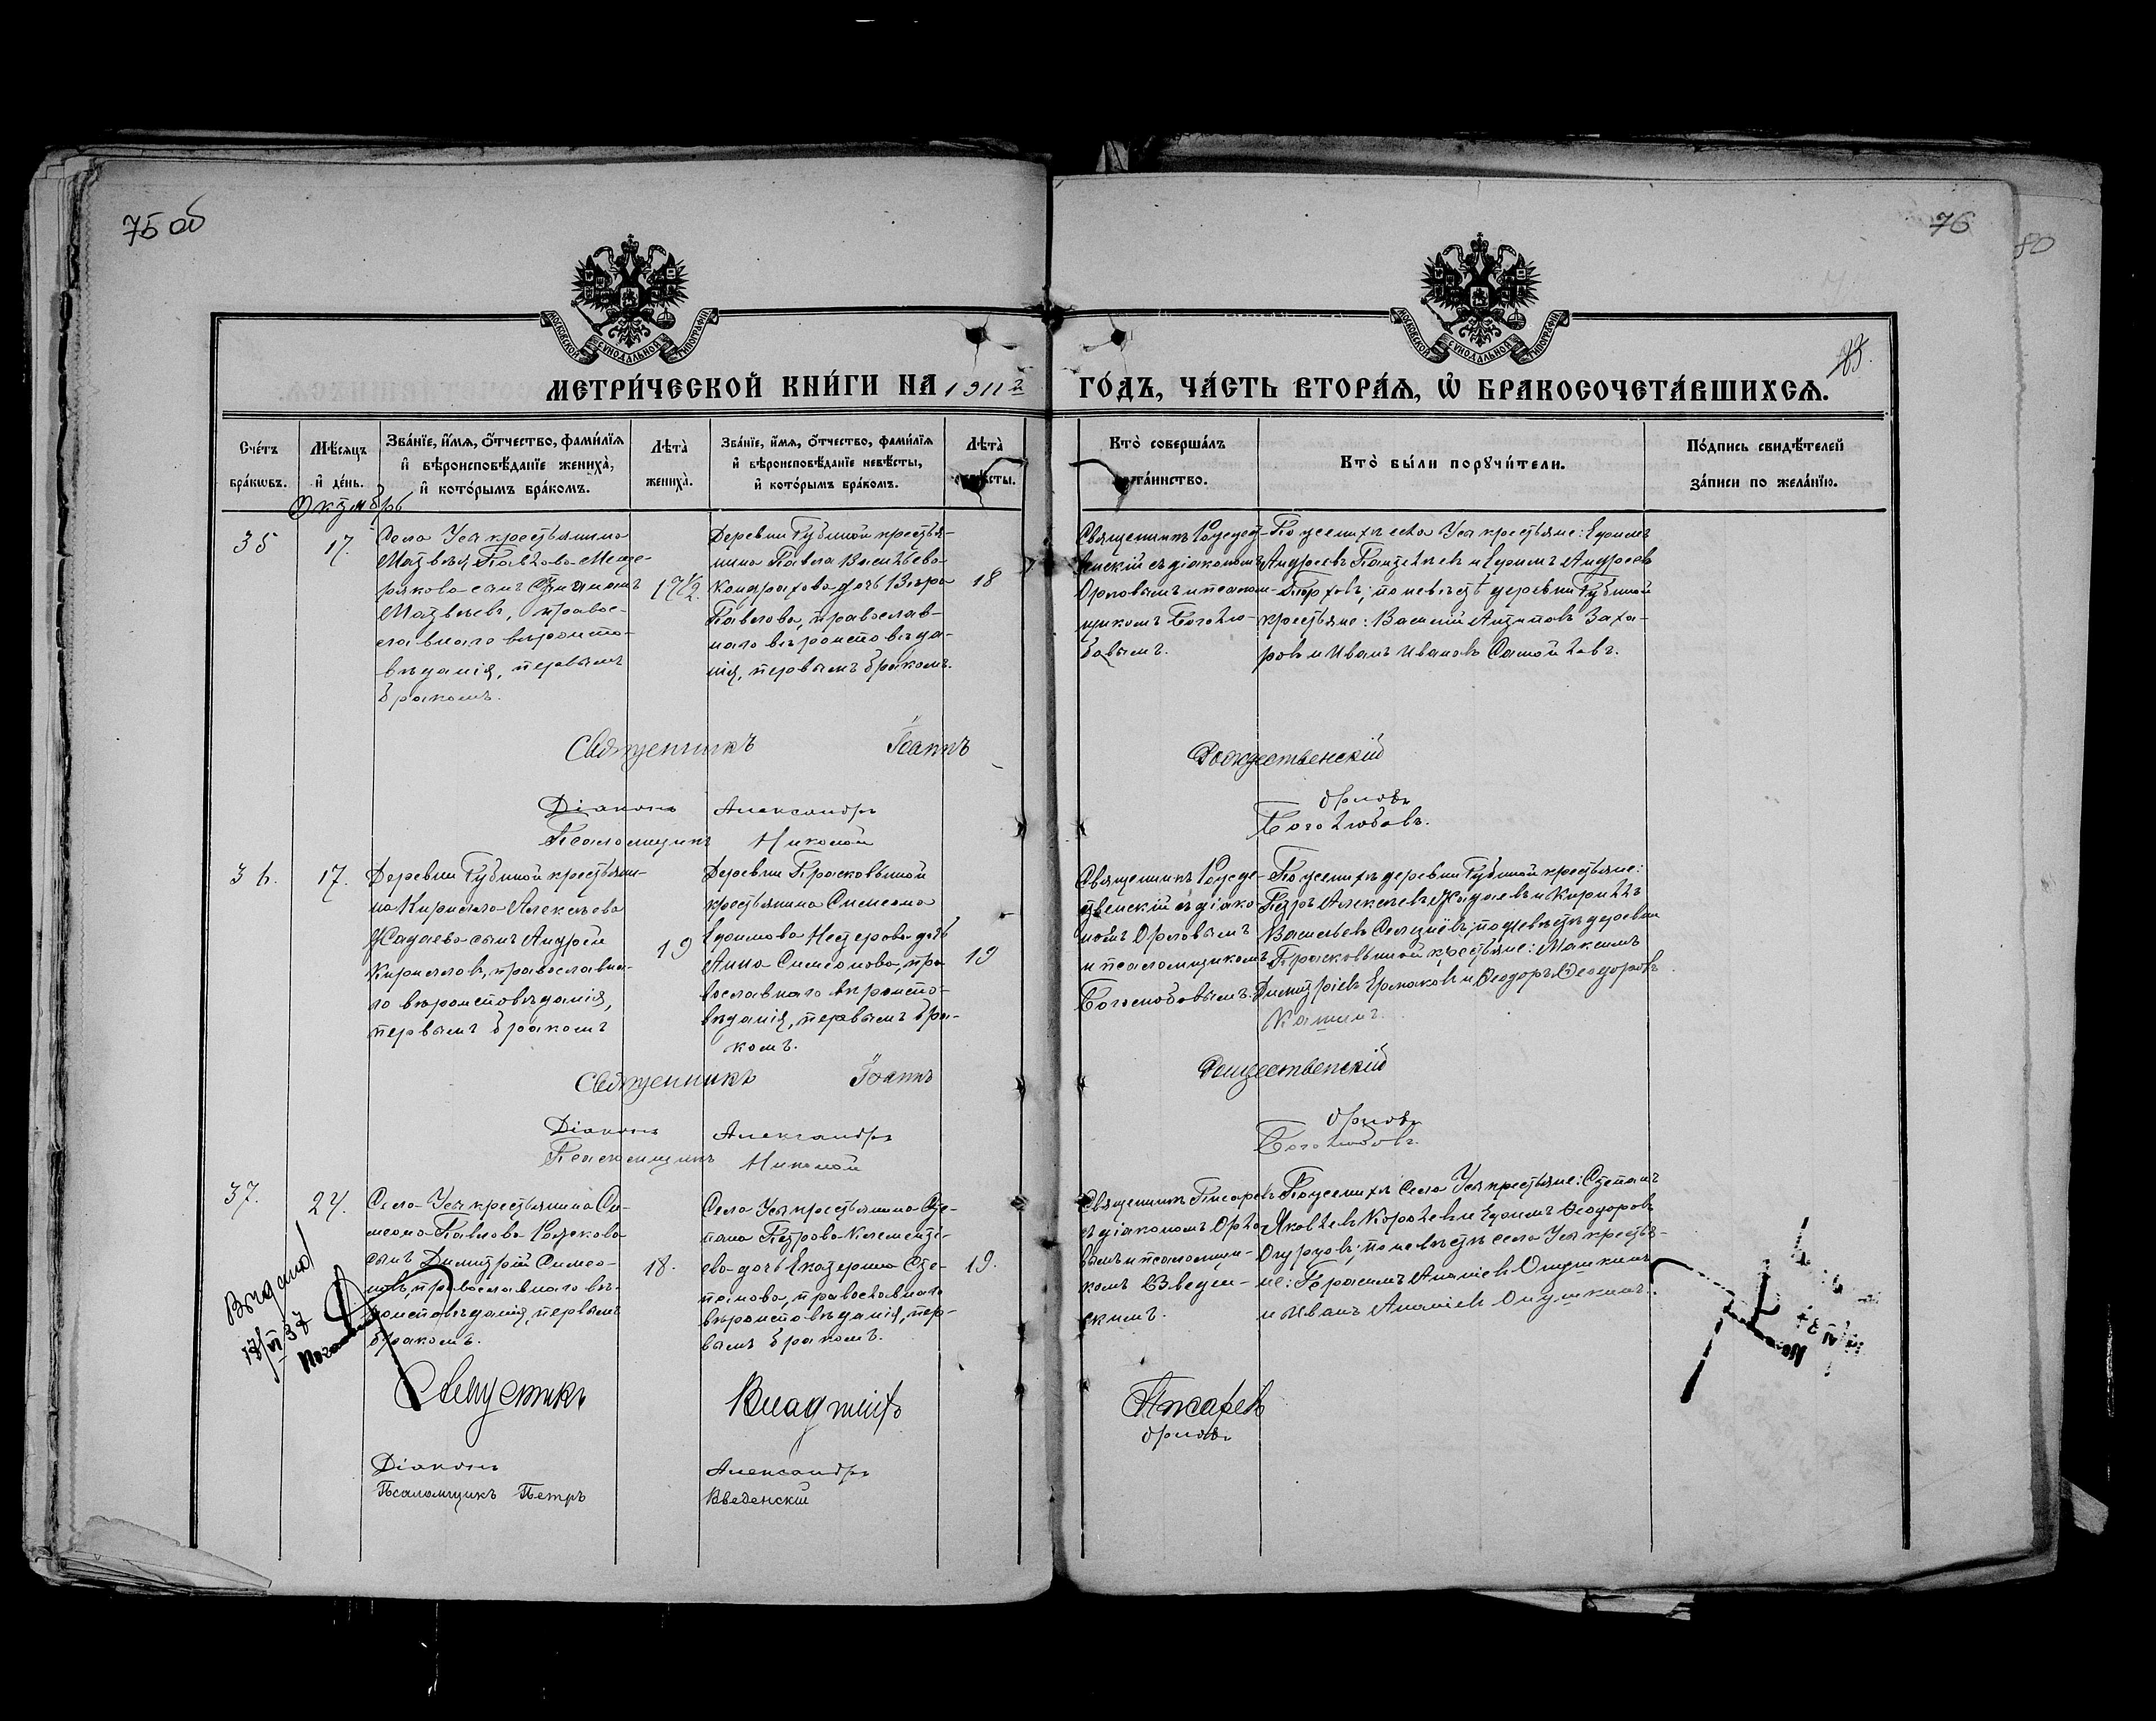 75 об
76
80
МОСКОВСКОЙ СѴНОДАЛЬНОЙ ТИПОГРАФІИ
МОСКОВСКОЙ СѴНОДАЛЬНОЙ ТИПОГРАФІИ
МЕТРИ́ЧЕСКОЙ КНИ́ГИ НА 1911 й
ГО́ДЪ, ЧА́СТЬ ВТОРА́Я, Ѽ БРАКОСОЧЕТА́ВШИХСЯ.
Сче́тъ
бра́кѡвъ.
Мѣ́сяцъ
и҆ де́нь.
Зва́нїе, и҆́мя, ѻ҆́тчество, фами́лїя
и҆ вѣроисповѣ́данїе жениха̀,
и҆ кото́рымъ бра́комъ.
Лѣта̀
жениха̀.
Зва́нїе, и҆́мя, ѻ҆́тчество, фами́лїя
и҆ вѣроисповѣ́данїе невѣ́сты,
и҆ кото́рымъ бра́комъ.
Лѣта̀
невѣ́сты.
Кто̀ соверша́лъ
та́инство.
Кто̀ бы́ли порꙋчи́тели.
По́дпись свидѣ́телей
за́писи по жела́нїю.
Октябрь
35
17.
Села Усья крестьянина
Матвѣя Павлова Меще-
рякова сынъ Стефанъ
Матвѣевъ, правос-
лавнаго вѣроиспо-
вѣданія, первымъ
бракомъ.
17½.
Деревни Губиной крестья-
нина Павла Васильева
Кондратова дочь Вѣра
Павлова, православ-
наго вѣроисповѣда-
нія, первымъ бракомъ.
18
Священникъ Рождест-
венскій съ діакономъ
Орловымъ и псалом-
щикомъ Боголю-
бовымъ.
По женихѣ села Усья крестьяне: Ефимъ
Андреевъ Пантелеевъ и Ефимъ Андреевъ
по невѣстѣ деревни Губиной
крестьяне: Василій Антиповъ Заха-
ровъ и Иванъ Ивановъ Самойловъ.
Священникъ Іоаннъ Рождественскій
Діаконъ Александръ Орловъ
Псаломщикъ Николай Боголюбовъ.
36.
17.
Деревни Губиной крестьяни-
на Кирилла Алексѣева
Жадаева сынъ Андрей
Кирилловъ, православна-
го вѣроисповѣданія,
первымъ бракомъ
19
Деревни Прасковьиной
крестьянина Симеона
Ефимова Нестерова дочь
Анна Симеонова, пра-
вославнаго вѣроиспо-
вѣданія, первымъ бра-
комъ.
19
Священникъ Рождес-
твенскій съ діако-
номъ Орловымъ
и псаломщикомъ
Боголюбовымъ.
По женихѣ деревни Губиной крестьяне:
Петръ Алексѣевъ Жадаевъ и Кириллъ
Васильевъ по невѣстѣ деревни
Прасковьиной крестьяне: Максимъ
Димитріевъ Ермаковъ и Ѳеодоръ Ѳеодоровъ
Кашинъ.
Священникъ Іоаннъ Рождественскій
Діаконъ Александръ Орловъ
Псаломщикъ Николай Боголюбовъ.
37.
24.
Села Усья крестьянина Си-
меона Павлова
сынъ Димитрій Симео-
новъ, православнаго вѣ-
роисповѣданія, первымъ
бракомъ.
18.
Села Усья крестьянина Сте-
пана Петрова Клементь-
ева дочь Екатерина Сте-
панова, православнаго
вѣроисповѣданія, пер-
вымъ бракомъ.
19.
Священникъ Писаревъ
съ діакономъ Орло-
вымъ и псаломщи-
комъ Введен-
скимъ.
По женихѣ Села Усья крестьяне: Степанъ
Яковлевъ Королевъ и Ефимъ Ѳеодоровъ
Огурцовъ; по невѣстѣ села Усья крестья-
не: Герасимъ Ананіевъ Опушкинъ
и Иванъ Ананіевъ Опушкинъ.
Выдано
17/VI 37
Священникъ Владиміръ Писаревъ
Діаконъ Александръ Орловъ
Псаломщикъ Петръ Введенскій